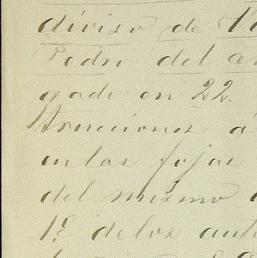 diviso de
Pedro del
gado en 22.
strucciones á
en las fojas
del mismo
1º de los